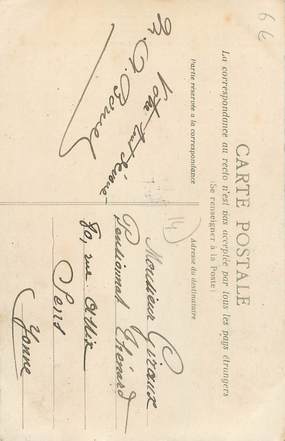 CARTE POSTALE
La correspondance au recto n'est pas acceptée par tous les pays étrangers
(Se renseigner à la Poste)
Partie réservée à la correspondance
Votre tout dévoué
Adresse du destinataire
Monsieur Giraux
Pensionnat Thénard
80, rue
Sens
Yonne